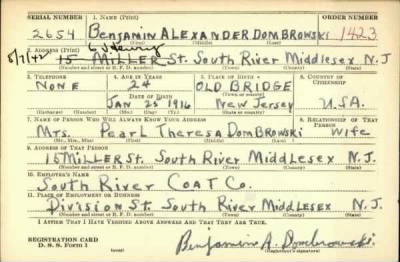 SERIAL NUMBER 1. NAME (Print) ORDER NUMBER
2654 BENJAMIN ALEXANDER DOMBROWSKI 1423
(First) (Middle) (Last)
2. ADDRESS (Print)
15 MILLER St. South River Middlesex N.J
(Number and street or R. F. D. number) (Town) (County) (State)
3. TELEPHONE 4. AGE IN YEARS 5. PLACE OF BIRTH 6. COUNTRY OF CITIZENSHIP
NONE 24 OLD BRIDGE
DATE OF BIRTH (Town or county)
JAN 25 1916 NEW Jersey U.S.A.
(Exchange) (Number) (Mo.) (Day) (Yr.) (State or country)
7. NAME OF PERSON WHO WILL ALWAYS KNOW YOUR ADDRESS 8. RELATIONSHIP OF THAT PERSON
Mrs. Pearl Theresa DomBROWSKI Wife
(Mr., Mrs., Miss) (First) (Middle) (Last)
9. ADDRESS OF THAT PERSON
15 MILLER St. South River MIDDLESEX N.J.
(Number and street or R. F. D. number) (Town) (County) (State)
10. EMPLOYER'S NAME
South River COAT Co.
11. PLACE OF EMPLOYMENT OR BUSINESS
Division St. South River MIDDLESEX N.J.
(Number and street or R. F. D. number) (Town) (County) (State)
I AFFIRM THAT I HAVE VERIFIED ABOVE ANSWERS AND THAT THEY ARE TRUE.
REGISTRATION CARD
D. S. S. Form 1
Benjamin A. Dombrowski.
(Registrant's signature)